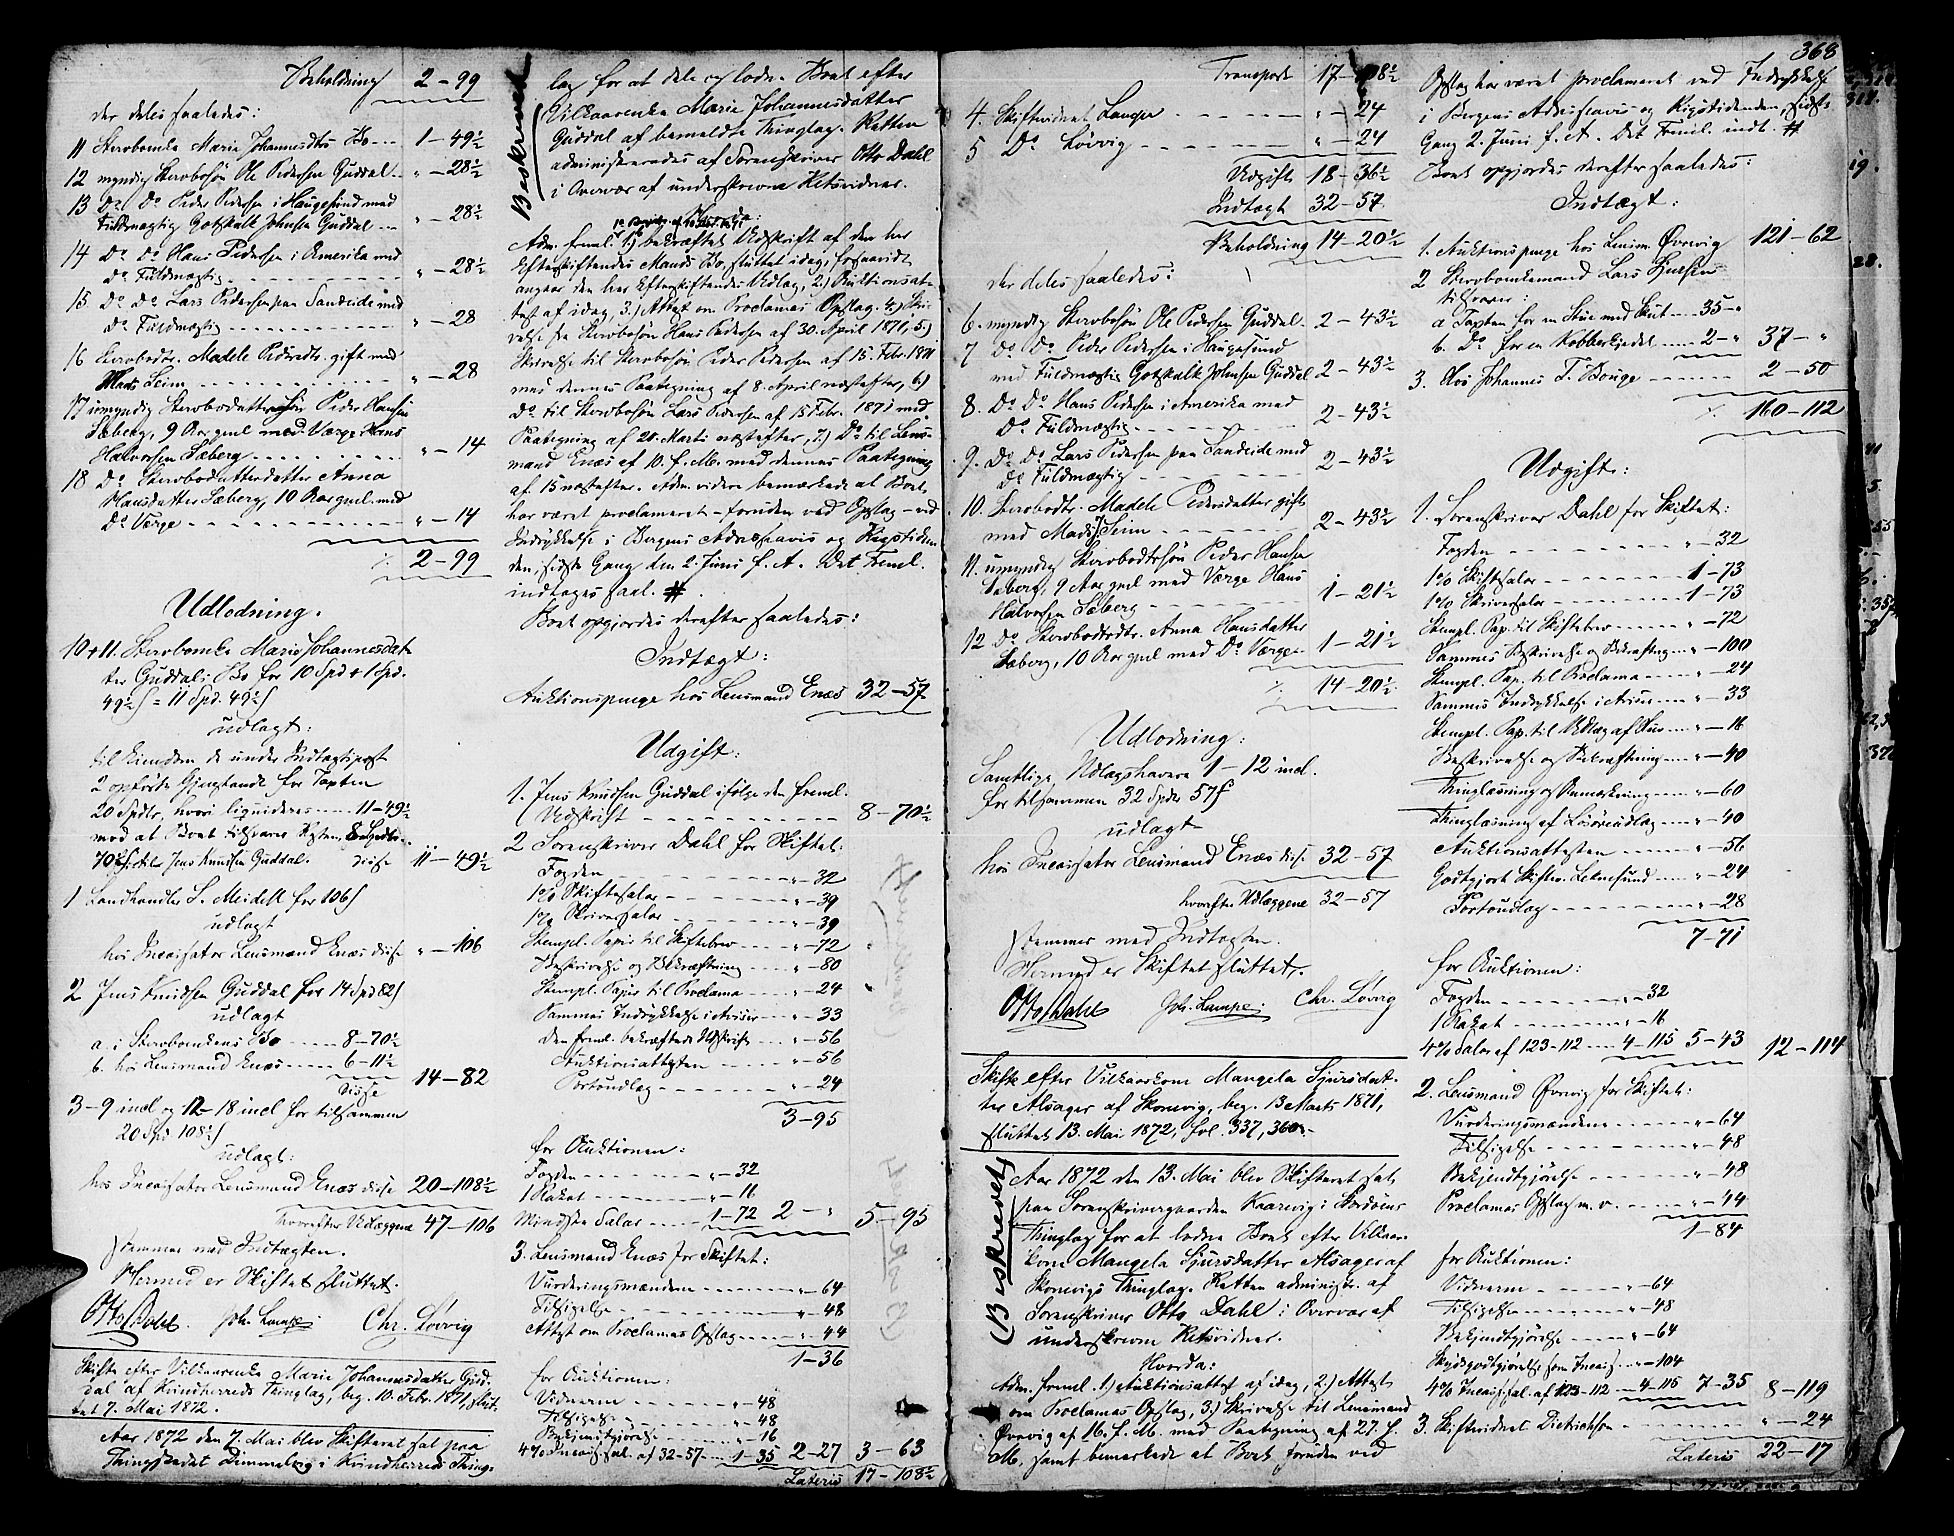 Beholdning 2-99
der deles saaledes:
11 Sterboenke Marie Johannesdtrs Bo 1-49½
12 myndig Sterbosøn Ole Pedersen Guddal „-28½
13 Do Do Peder Pedersen i Haugesund med
Fuldmægtig Gotskalk Johnsen Guddal „-28½
14 Do Do Hans Pedersen i Amerika med
Do Fuldmægtig „-28½
15 Do Do Lars Pedersen paa Sandeide med
Do Fuldmægtig „-28
16 Sterbodtr. Madele Pedersdtr. gift med
Mads Seim „-28
17 umyndig Sterbodattersøn Peder Hansen
Sæberg, 9 Aar gml med Værge Hans
Halvorsen Sæberg „-14
18 Do Sterbodatterdatter Anna
Hansdatter Sæberg, 10 Aar gml. med
Do Værge „-14
2-99
Udlodning.
10+11. Sterboenke Marie Johannesdat-
ter Guddals Bo for 10 Spd + 1 Spd.
49½ ß = 11 Spd. 49½ ß
udlagt:
til Eiendom de under Indtægtspost
2 opførte Gjenstande for Taxten
20 Spdlr, hvori liquideres 11-49½
mod at Boet tilsvarer Resten, 8 Spdlr
70½ ß til Jens Knudsen Guddal. disse 11-49½
1 Landhandler S. Meidell for 106 ß
udlagt
hos Incassator Lensmand Enæs disse „-106
2 Jens Knudsen Guddal for 14 Spd 82 ß
udlagt
a. i Sterboenkens Bo 8-70½
b. hos Lensmand Enæs 6-11½
disse 14-82
3-9 incl og 12-18 incl for tilsammen
20 Spd 108½ ß
udlagt:
hos Incassator Lensmand Enæs disse 20-108½
hvorefter Udlæggene 47-106
stemmer med Indtægten.
Hermed er Skiftet sluttet.
Otto Dahl. Joh. Lampe Chr. Løvvig
Skifte efter Vilkaarenke Marie Johannesdatter Gud-
dal af Kvindherreds Thinglag, beg. 10. Febr. 1871, slut-
tet 7. Mai 1872.
Aar 1872 den 7. Mai blev Skifteret sat paa
Thingstedet Dimmelvig i Kvindherreds Thing-
Beskrevet
lag for at dele og lodne Boet efter
Vilkaarenke Marie Johannesdatter
Guddal af bemeldte Thinglag. Retten
administreredes af Sorenskriver Otto Dahl
i Overvær af underskrevne Retsvidner.
Hvorda:
Adm. freml. 1) bekræftet Udskrift af den her
Efterskiftendes Mands Bo, sluttet idag, forsaavidt
angaar den her Efterskiftendes Udlag, 2.) Auktionsat-
test af idag, 3.) Attest om Proclamas Opslag. 4.) Skri-
velse fra Sterbosøn Hans Pedersen af 30. April 1871, 5.)
Skrivelse til Sterbosøn Peder Pedersen af 15. Febr. 1871
med dennes Paategning af 8. April næstefter, 6.)
Do til Sterbosøn Lars Pedersen af 15 Febr. 1871 med
Paategning af 20. Marts næstefter, 7.) Do til Lens-
mand Enæs af 10. f. M. med dennes Paategning
af 15 næstefter. Adm. videre bemærkede at Boet
har været proclameret foruden ved Opslag ved
Indrykkelse i Bergens Adresseavis og Rigstiden-
den, sidste Gang den 2. Juni f. A. Det Freml.
indtages saal. #
Boet opgjordes derefter saaledes:
Indtægt:
Auktionspenge hos Lensmand Enæs 32-57
Udgift:
1. Jens Knudsen Guddal ifølge den freml.
Udskrift 8-70½
2 Sorenskriver Dahl for Skiftet:
Fogden „-32
1% Skiftesalær „-39
1% Skriversalær „-39
Stempl. Papir til Skiftebrev „-72
Beskrivelse og Bekræftning „-80
Stempl. Papir til Proclama „-24
Sammes Indrykkelse i Aviser „-33
den freml. bekræftede Udskrift „-56
Auktionsattesten „-56
Portoudlæg „-24
3-95
for Auktionen:
Fogden „-32
1 Plakat „-16
Mindste Salær 1-72 2-„ 5-95
3. Lensmand Enæs for Skiftet:
Vurderingsmændene „-64
Tilsigelse „-48
Attest om Proclamas Opslag „-44
1-36
for Auktionen:
Vidnerne „-48
Tilsigelse „-48
Bekjendtgjørelse „-16
4% Incassosal. af 32-57 1-35 2-27 3-63
Lateris 17-108½
368
Transport 17-108½
4. Skiftevidnet Lampe „-24
5 Do Løvvig „-24
Udgift 18-36½
Indtægt 32-57
Beholdning 14-20½
der deles saaledes:
6. myndig Sterbosøn Ole Pedersen Guddal 2-43½
7 Do Do Peder Pedersen i Haugesund
med Fuldmægtig Gotskalk Johnsen Guddal 2-43½
8. Do Do Hans Pedersen i Amerika med
Do Fuldmægtig 2-43½
9. Do Do Lars Pedersen paa Sandeide med
Do Fuldmægtig 2-43½
10. Sterbodtr. Madele Pedersdatter gift
med Mads Seim 2-43½
11. umyndig Sterbodtrsøn Peder Hansen
Sæberg, 9 Aar gml med Værge Hans
Halvorsen Sæberg 1-21½
12 Do Sterbodtrdtr. Anna Hansdatter
Sæberg, 10 Aar gml med Do Værge 1-21½
14-20½
Udlodning:
Samtlige Udlagshavere 1-12 incl.
for tilsammen 32 Spdlr 57 ß
udlagt
hos Incassator Lensmand Enæs disse 32-57
hvorefter Udlæggene 32-57
stemmer med Indtægten.
Hermed er Skiftet sluttet.
Otto Dahl Joh. Lampe Chr. Løvvig
Skifte efter Vilkaarskone Mangela Sjursdat-
ter Alsager af Skonevig, beg. 13 Marts 1871,
sluttet 13. Mai 1872, fol. 337, 360.
Beskrevet
Aar 1872 den 13. Mai blev Skifteret sat
paa Sorenskrivergaarden Kaarevig i Størdøens
Thinglag for at lodne Boet efter Vilkaars-
kone Mangela Sjursdatter Alsager af
Skonevigs Thinglag. Retten administr. af
Sorenskriver Otto Dahl i Overvær af
underskrevne Retsvidner.
Hvorda:
Adm. freml. 1.) Auktionsattest af idag, 2.) Attest
om Proclamas Opslag, 3.) Skrivelse til Lensmand
Øvrevig af 16. f. M. med Paategning af 27. f.
M., samt bemærkede at Boet foruden ved
Opslag har været proclameret ved Indrykkelse
i Bergens Adresseavis og Rigstidenden, sidste
Gang 2. Juni f. A. Det Freml. indt. #
Boet opgjordes derefter saaledes:
Indtægt:
1. Auktionspenge hos Lensm. Øvrevig 121-62
2 Sterboenkemand Lars
tilsvarer:
a Taxten for en Stue med Skut 35-„
b. Do for en Kobberkjedel 2-„ 37-„
3. Hos Johannes T. Bouge 2-50
160-112
Udgift:
1. Sorenskriver Dahl for Skiftet:
Fogden „-32
1% Skiftesalær 1-73
1% Skriversalær 1-73
Stempl. Pap. til Skiftebrev „-72
Sammes Beskrivelse og Bekræftng „-100
Stempl. Pap. til Proclama „-24
Sammes Indrykkelse i Aviser „-33
Stempl. Pap. til Udlæg af Hus „-18
Beskrivelse og Bekræftning „-40
Thinglæsning og Anmærkning „-60
Thinglæsning af Løsøreudlæg „-40
Auktionsattesten „-56
Godtgjort Skiftev. Leknesund „-24
Portoudlæg „-28
7-71
for Auktionen:
Fogden „-32
1 Plakat „-16
4% Salær af 123-112 4-115 5-43 12-114
2. Lensmand Øvrevig for Skiftet:
Vurderingsmændene „-64
Tilsigelse „-48
Bekjendtgjørelse „-48
Proclamas Opslag m.v. „-44
1-84
for Auktionen:
Vidnerne „-64
Tilsigelse „-48
Bekjendtgjørelse „-64
Skydsgodtgjørelse som Incass. „-104
4% Incassosal. af 123-112 4-115 7-35 8-119
3. Skiftevidnet Dietrichson „-24
Lateris 22-17